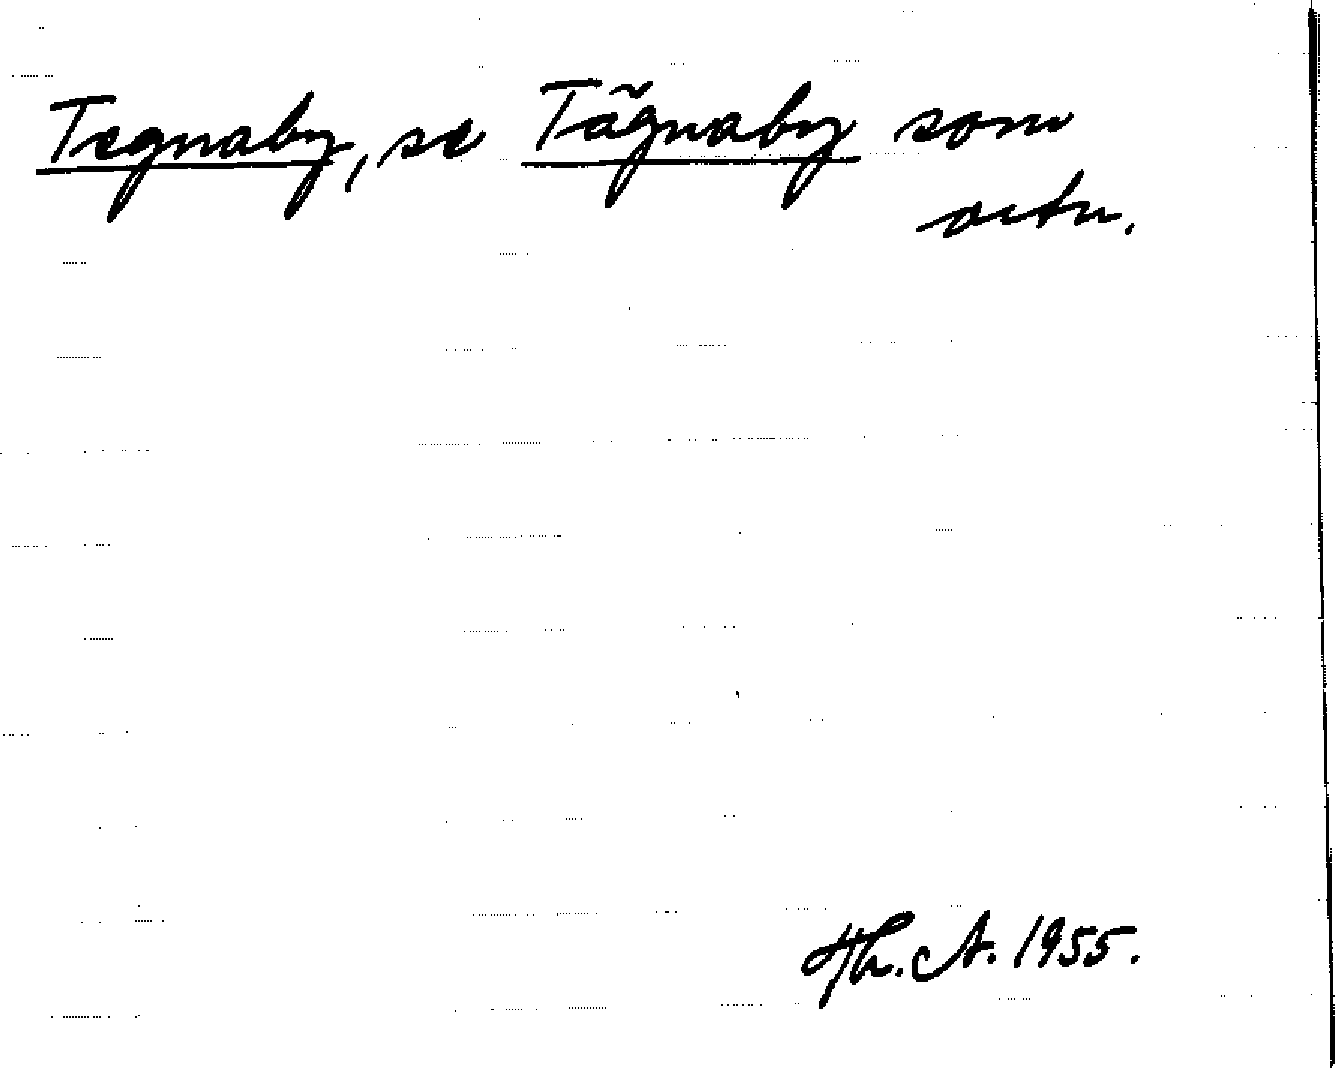 Tegnaby, se Tägnaby som
ortn.
Th. A. 1955.